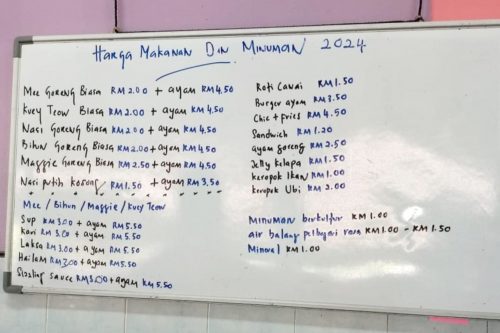 HARGA MAKANAN DAN MINUMAN 2024
Mee Goreng Biasa RM2.00 + ayam RM4.50
Kuey Teow Biasa RM2.00 + ayam RM4.50
Nasi Goreng Biasa RM2.00 + ayam RM4.50
Bihun Goreng Biasa RM2.00 + ayam RM4.50
Maggie Goreng Biasa RM2.50 + ayam RM4.50
Nasi putih kosong RM1.50 + ayam RM3.50
Mee / Bihun / Maggie / Kuey Teow
Sup RM3.00 + ayam RM5.50
Kari RM3.00 + ayam RM5.50
Laksa RM3.00 + ayam RM5.50
Hailam RM3.00 + ayam RM5.50
Sizzling sauce RM3.00 + ayam RM5.50
Roti Canai RM1.50
Burger ayam RM3.50
Chic + fries RM4.50
Sandwich RM1.20
ayam goreng RM2.50
Jelly kelapa RM1.50
keropok Ikan RM1.00
keropok Ubi RM2.00
Minuman berkultur RM1.00
air balang pelbagai rasa RM1.00 - RM1.50
Mineral RM1.00